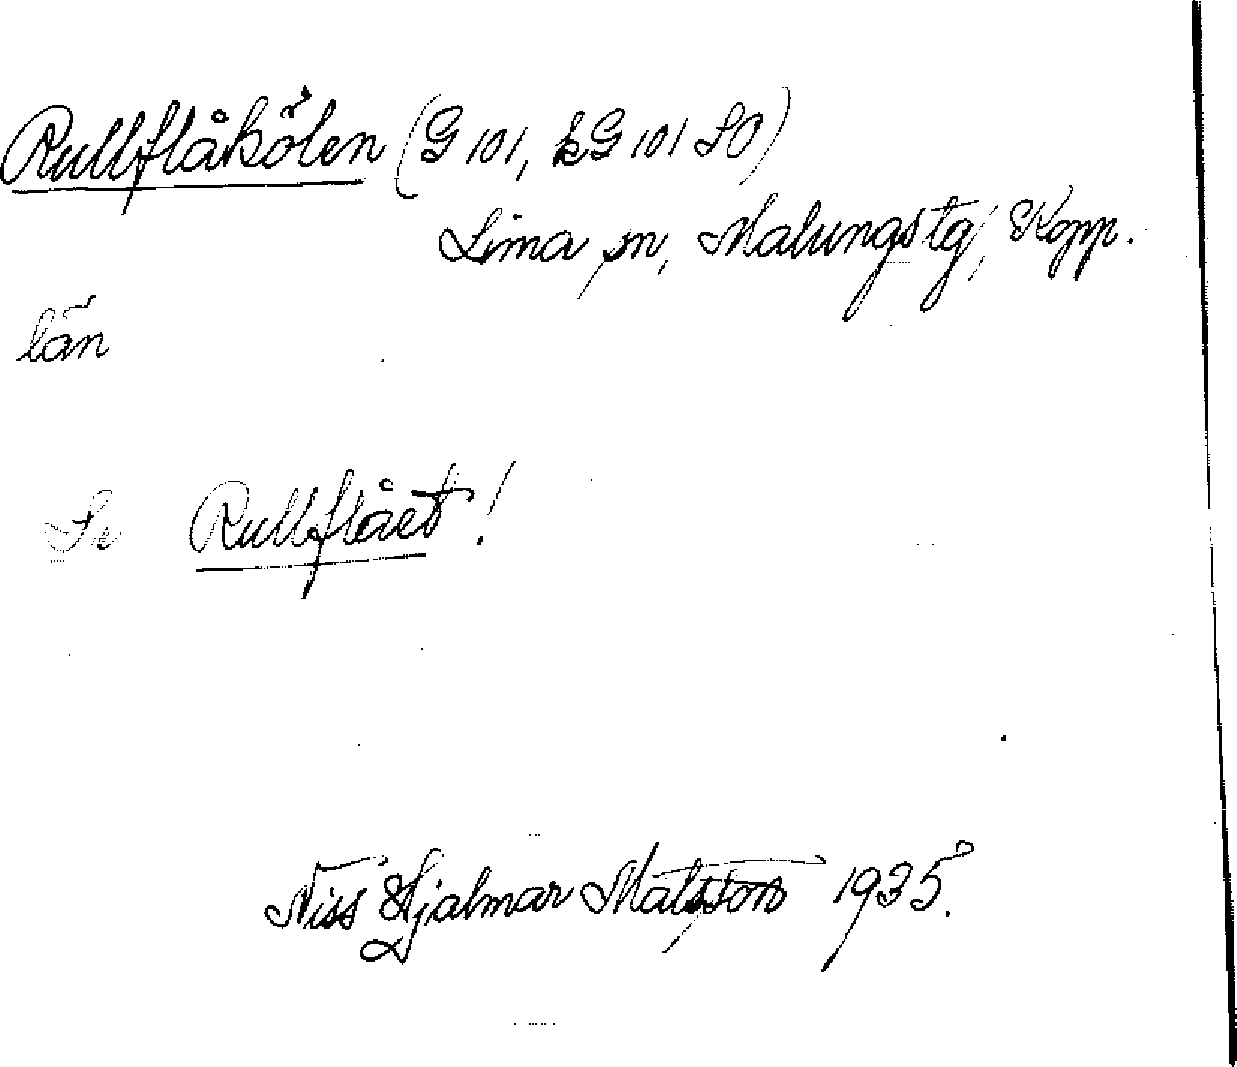 Rullflåkölen (G 101, kG 101 SO)
Lima sn, Malungs tg, Kopp.
län
Se Rullflået!
Niss Hjalmar Matsson 1935.